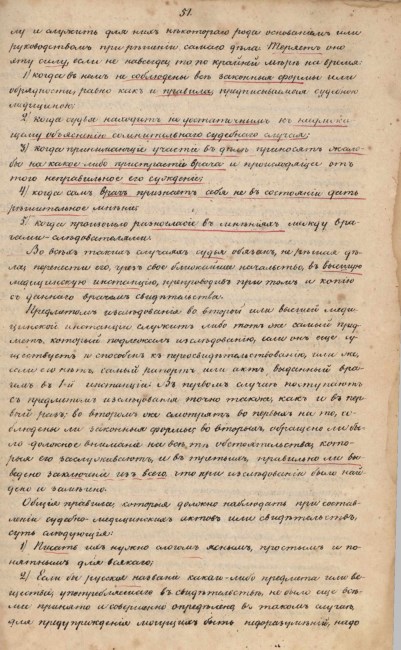 51.
му и служить для нихъ нѣкотораго рода основаніемъ или
руководствомъ при рѣшеніи самаго дѣла. Теряетъ оно
эту силу, если не навсегда, то по крайней мѣрѣ на время
1) когда въ немъ не соблюдены всѣ законныя формы или
обрядности, равно какъ и правила, предписываемыя судебною
медициною;
2) когда судья находитъ недостаточнымъ къ
объясненію сомнительнаго судебнаго случая;
3) когда принимающіе участіе въ дѣлѣ приносятъ жало-
бы на какое либо пристрастіе врача и происходящее отъ
того неправильное его сужденіе;
4) когда самъ врачъ признаетъ себя не въ состояніи дать
рѣшительное мнѣніе;
5) когда произошло разногласіе въ мнѣніяхъ между вра-
чами-изслѣдователями.
Во всѣхъ такихъ случаяхъ судья обязанъ, не рѣшая дѣ-
ла, перенести его, чрезъ свое ближайшее начальство, въ высшую
медицинскую инстанцію, препроводивъ при томъ и копію
съ даннаго врачомъ свидѣтельства.
Предметомъ изслѣдованія во второй или высшей меди-
цинской инстанціи служитъ либо тотъ же самый пред-
метъ, который подлежалъ изслѣдованію, если онъ еще су-
ществуетъ и способенъ къ переосвидѣтельствованію, или же,
если его нѣтъ, самый рапортъ или актъ, выданный вра-
чемъ въ 1-й инстанціи. Въ первомъ случаѣ поступаютъ
съ предметомъ изслѣдованія точно также, какъ и въ пер-
вый разъ; во второмъ же смотрятъ во первыхъ на то, со-
блюдены ли законныя формы; во вторыхъ, обращено ли бы-
ло должное вниманіе на всѣ тѣ обстоятельства, кото-
рыя его заслуживаютъ, и въ третьихъ, правильно ли вы-
ведено заключеніе изъ всего, что при изслѣдованіи было най-
дено и замѣчено.
Общія правила, которыя должно наблюдать при состав-
леніи судебно-медицинскихъ актовъ или свидѣтельствъ,
суть слѣдующія:
1) Писать ихъ нужно слогомъ яснымъ, простымъ и по-
нятнымъ для всякаго;
2) Если бы русское названіе какаго-либо предмета или ве-
щества, употребляемаго въ свидѣтельствѣ, не было еще все-
ми принято и совершенно опредѣлено, въ такомъ случаѣ,
для предупрежденія могущихъ быть недоразумѣній, надо